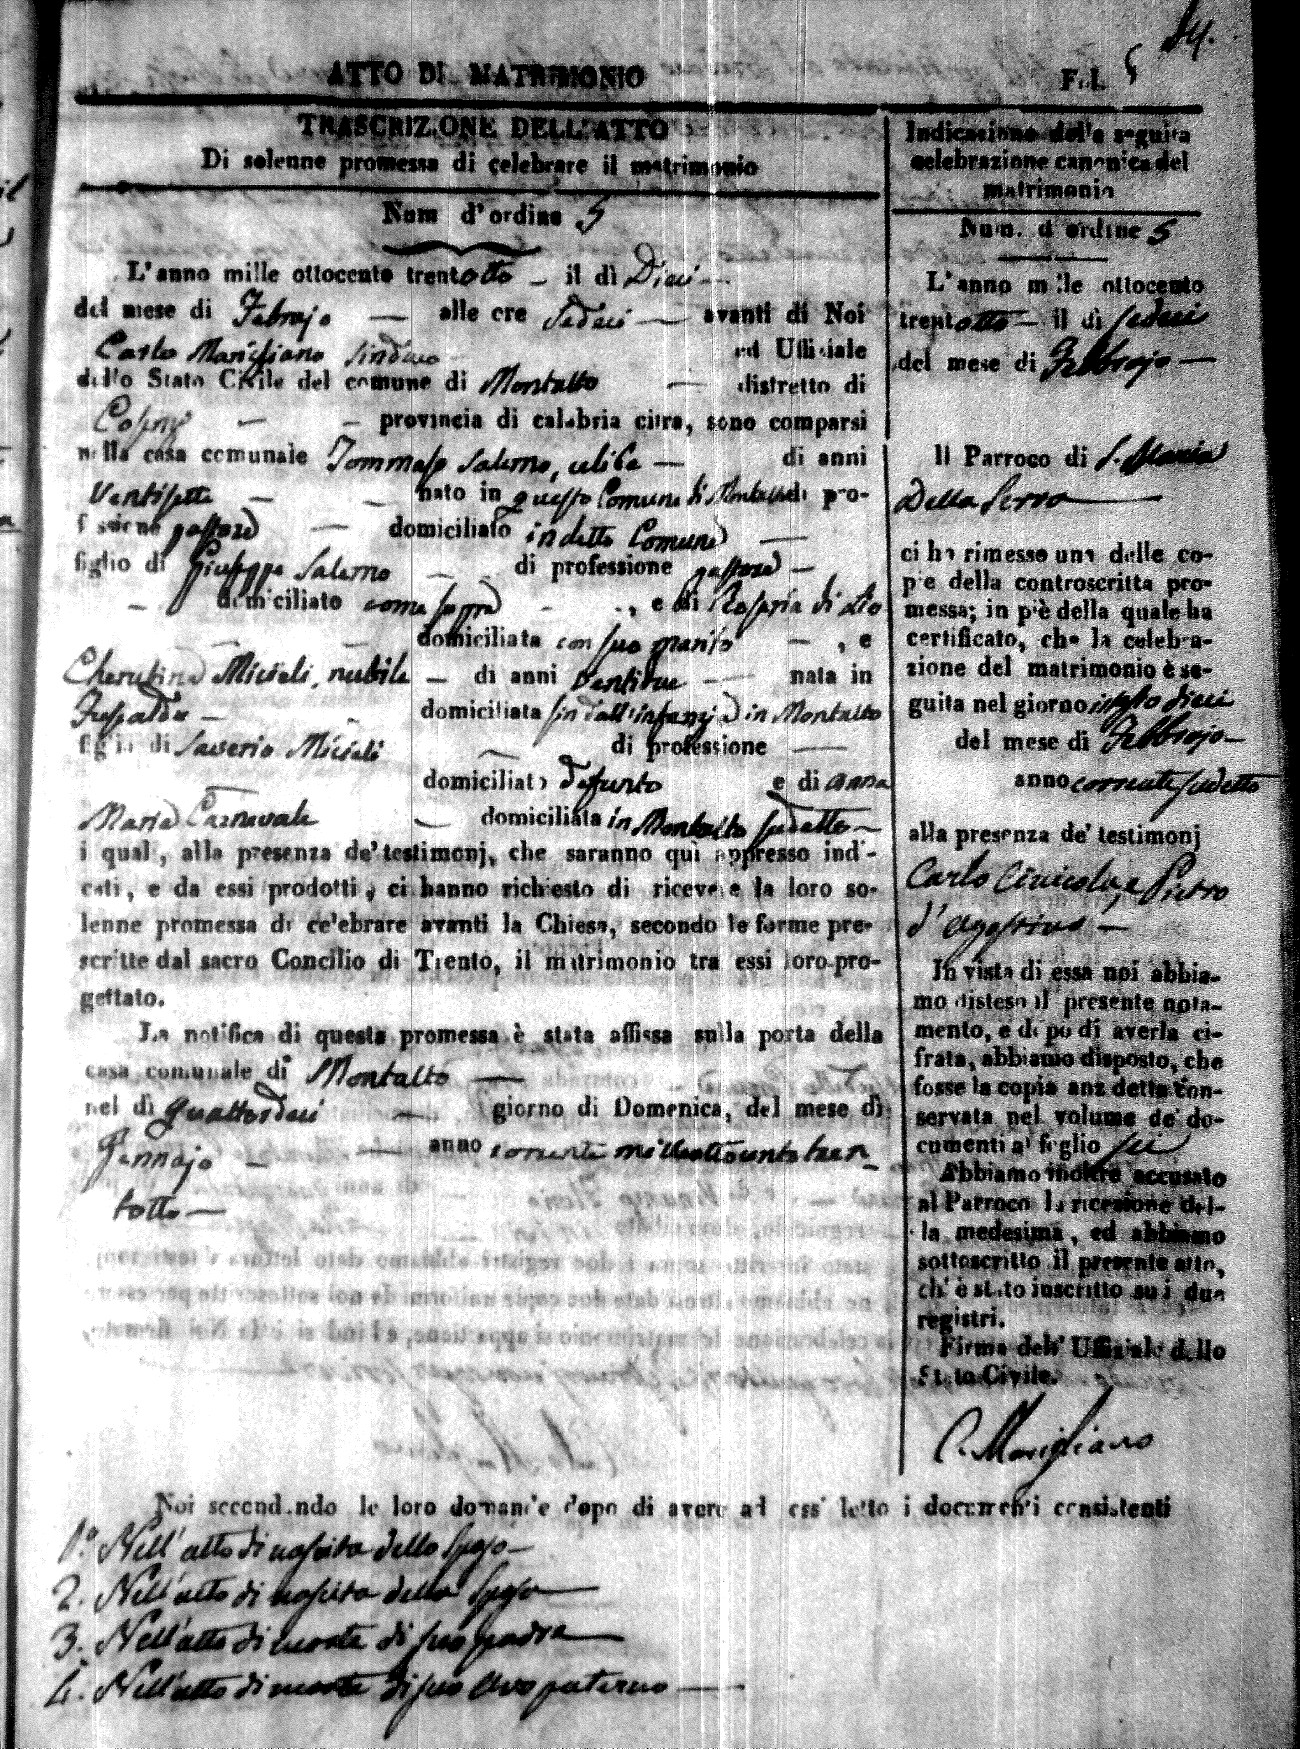 ATTO DI MATRIMONIO
Fol. 5
TRASCRIZIONE DELL'ATTO
Di solenne promessa di celebrare il matrimonio
Num d'ordine 5
L'anno mille ottocento trentotto – il dì Dieci
del mese di Febrajo — alle ore Sedeci — avanti di Noi
Carlo Marigliano Sindaco ed Ufficiale
dello Stato Civile del comune di Montalto — distretto di
Cosenz — provincia di calabria citra, sono comparsi
nella casa comunale Tommaso Salerno, celibe — di anni
Ventisette — nato in questo Comune di Montalto di pro-
fessione — domiciliato in detto Comune —
figlio di Giuseppe Salerno — di professione —
— domiciliato come sopra — , e di Rosaria di Lio
domiciliata con suo marito — , e
Cherubina Miceli, nubile — di anni Ventidue — nata in
domiciliata sin dall'infanzia in Montalto
figlia di Saverio Miceli — di professione —
domiciliato defunto e di Anna
Maria Carnevale — domiciliata in Montalto sudetto —
i quali, alla presenza de' testimonj, che saranno quì appresso indi-
cati, e da essi prodotti, ci hanno richiesto di ricevere la loro so-
lenne promessa di celebrare avanti la Chiesa, secondo le forme pre-
scritte dal sacro Concilio di Trento, il matrimonio tra essi loro pro-
gettato.
La notifica di questa promessa è stata affissa sulla porta della
casa comunale di Montalto —
nel dì quattordeci — giorno di Domenica, del mese di
Gennajo — anno corrente milleottocentotren
totto —
Indicazione della seguita
celebrazione canonica del
matrimonio
Num. d'ordine 5
L'anno mille ottocento
trentotto — il dì sedeci
del mese di Febbrajo —
Il Parroco di S. Maria
Della Serra —
ci ha rimesso una delle co-
pie della controscritta pro-
messa; in piè della quale ha
certificato, che la celebra-
zione del matrimonio è se-
guita nel giorno dieci
del mese di Febbrajo —
anno corrente sudetto
alla presenza de' testimonj
Carlo e Pietro
d'Agostino —
In vista di essa noi abbia-
mo disteso il presente nota-
mento, e dopo di averla ci-
frata, abbiamo disposto, che
fosse la copia anzidetta con-
servata nel volume de' do-
cumenti al foglio sei
Abbiamo inoltre accusato
al Parroco la ricezione del-
la medesima, ed abbiamo
sottoscritto il presente atto,
ch'è stato inscritto su i due
registri.
Firma dell' Uffiziale dello
Stato Civile.
C. Marigliano
Noi secondando le loro domande dopo di avere ad essi letto i documenti consistenti
1.º Nell'atto di nascita dello Sposo —
2. Nell'atto di nascita della Sposa —
3. Nell'atto di morte di suo padre —
4. Nell'atto di morte di suo Avo paterno —